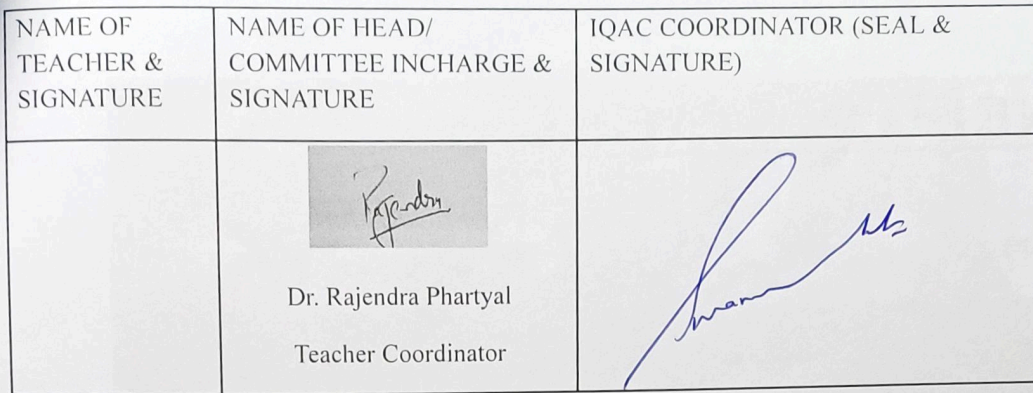 NAME OF
TEACHER &
SIGNATURE
NAME OF HEAD/
COMMITTEE INCHARGE &
SIGNATURE
IQAC COORDINATOR (SEAL &
SIGNATURE)
Rajendra
Dr. Rajendra Phartyal
Teacher Coordinator